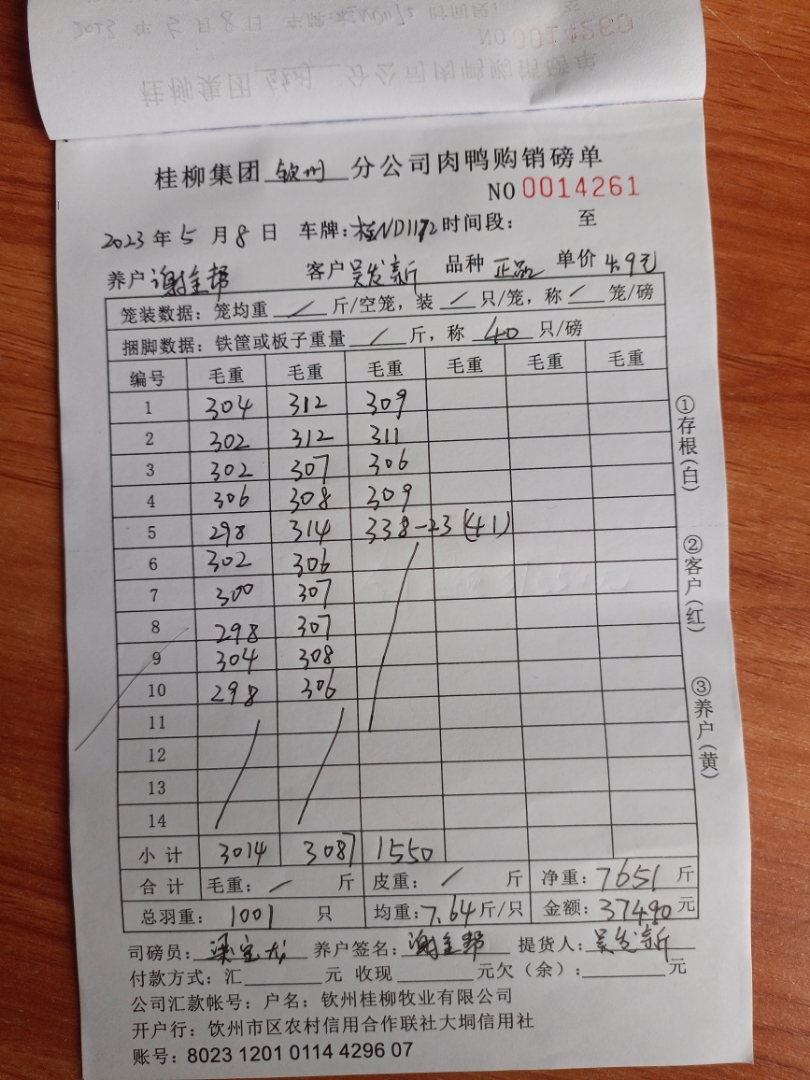 桂柳集团 钦州 分公司肉鸭购销磅单
NO 0014261
2023 年 5 月 8 日 车牌：桂ND1172 时间段： 至
养户 谢金帮 客户 吴发新 品种 正品 单价 4.9元
笼装数据：笼均重 / 斤/空笼，装 / 只/笼，称 / 笼/磅
捆脚数据：铁筐或板子重量 / 斤，称 40 只/磅
编号 毛重 毛重 毛重 毛重 毛重 毛重
1 304 312 309
2 302 312 311
3 302 307 306
4 306 308 309
5 298 314 338-23(41)
6 302 306
7 300 307
8 298 307
9 304 308
10 298 306
11
12
13
14
小计 3014 3087 1550
合计 毛重： / 斤 皮重： / 斤 净重：7651 斤
总羽重： 1001 只 均重：7.64斤/只 金额：37490元
司磅员： 梁宝龙 养户签名： 谢金帮 提货人： 吴发新
付款方式：汇 元 收现 元欠（余）： 元
公司汇款帐号：户名：钦州桂柳牧业有限公司
开户行：饮州市区农村信用合作联社大垌信用社
账号：8023 1201 0114 4296 07
①存根（白）
②客户（红）
③养户（黄）